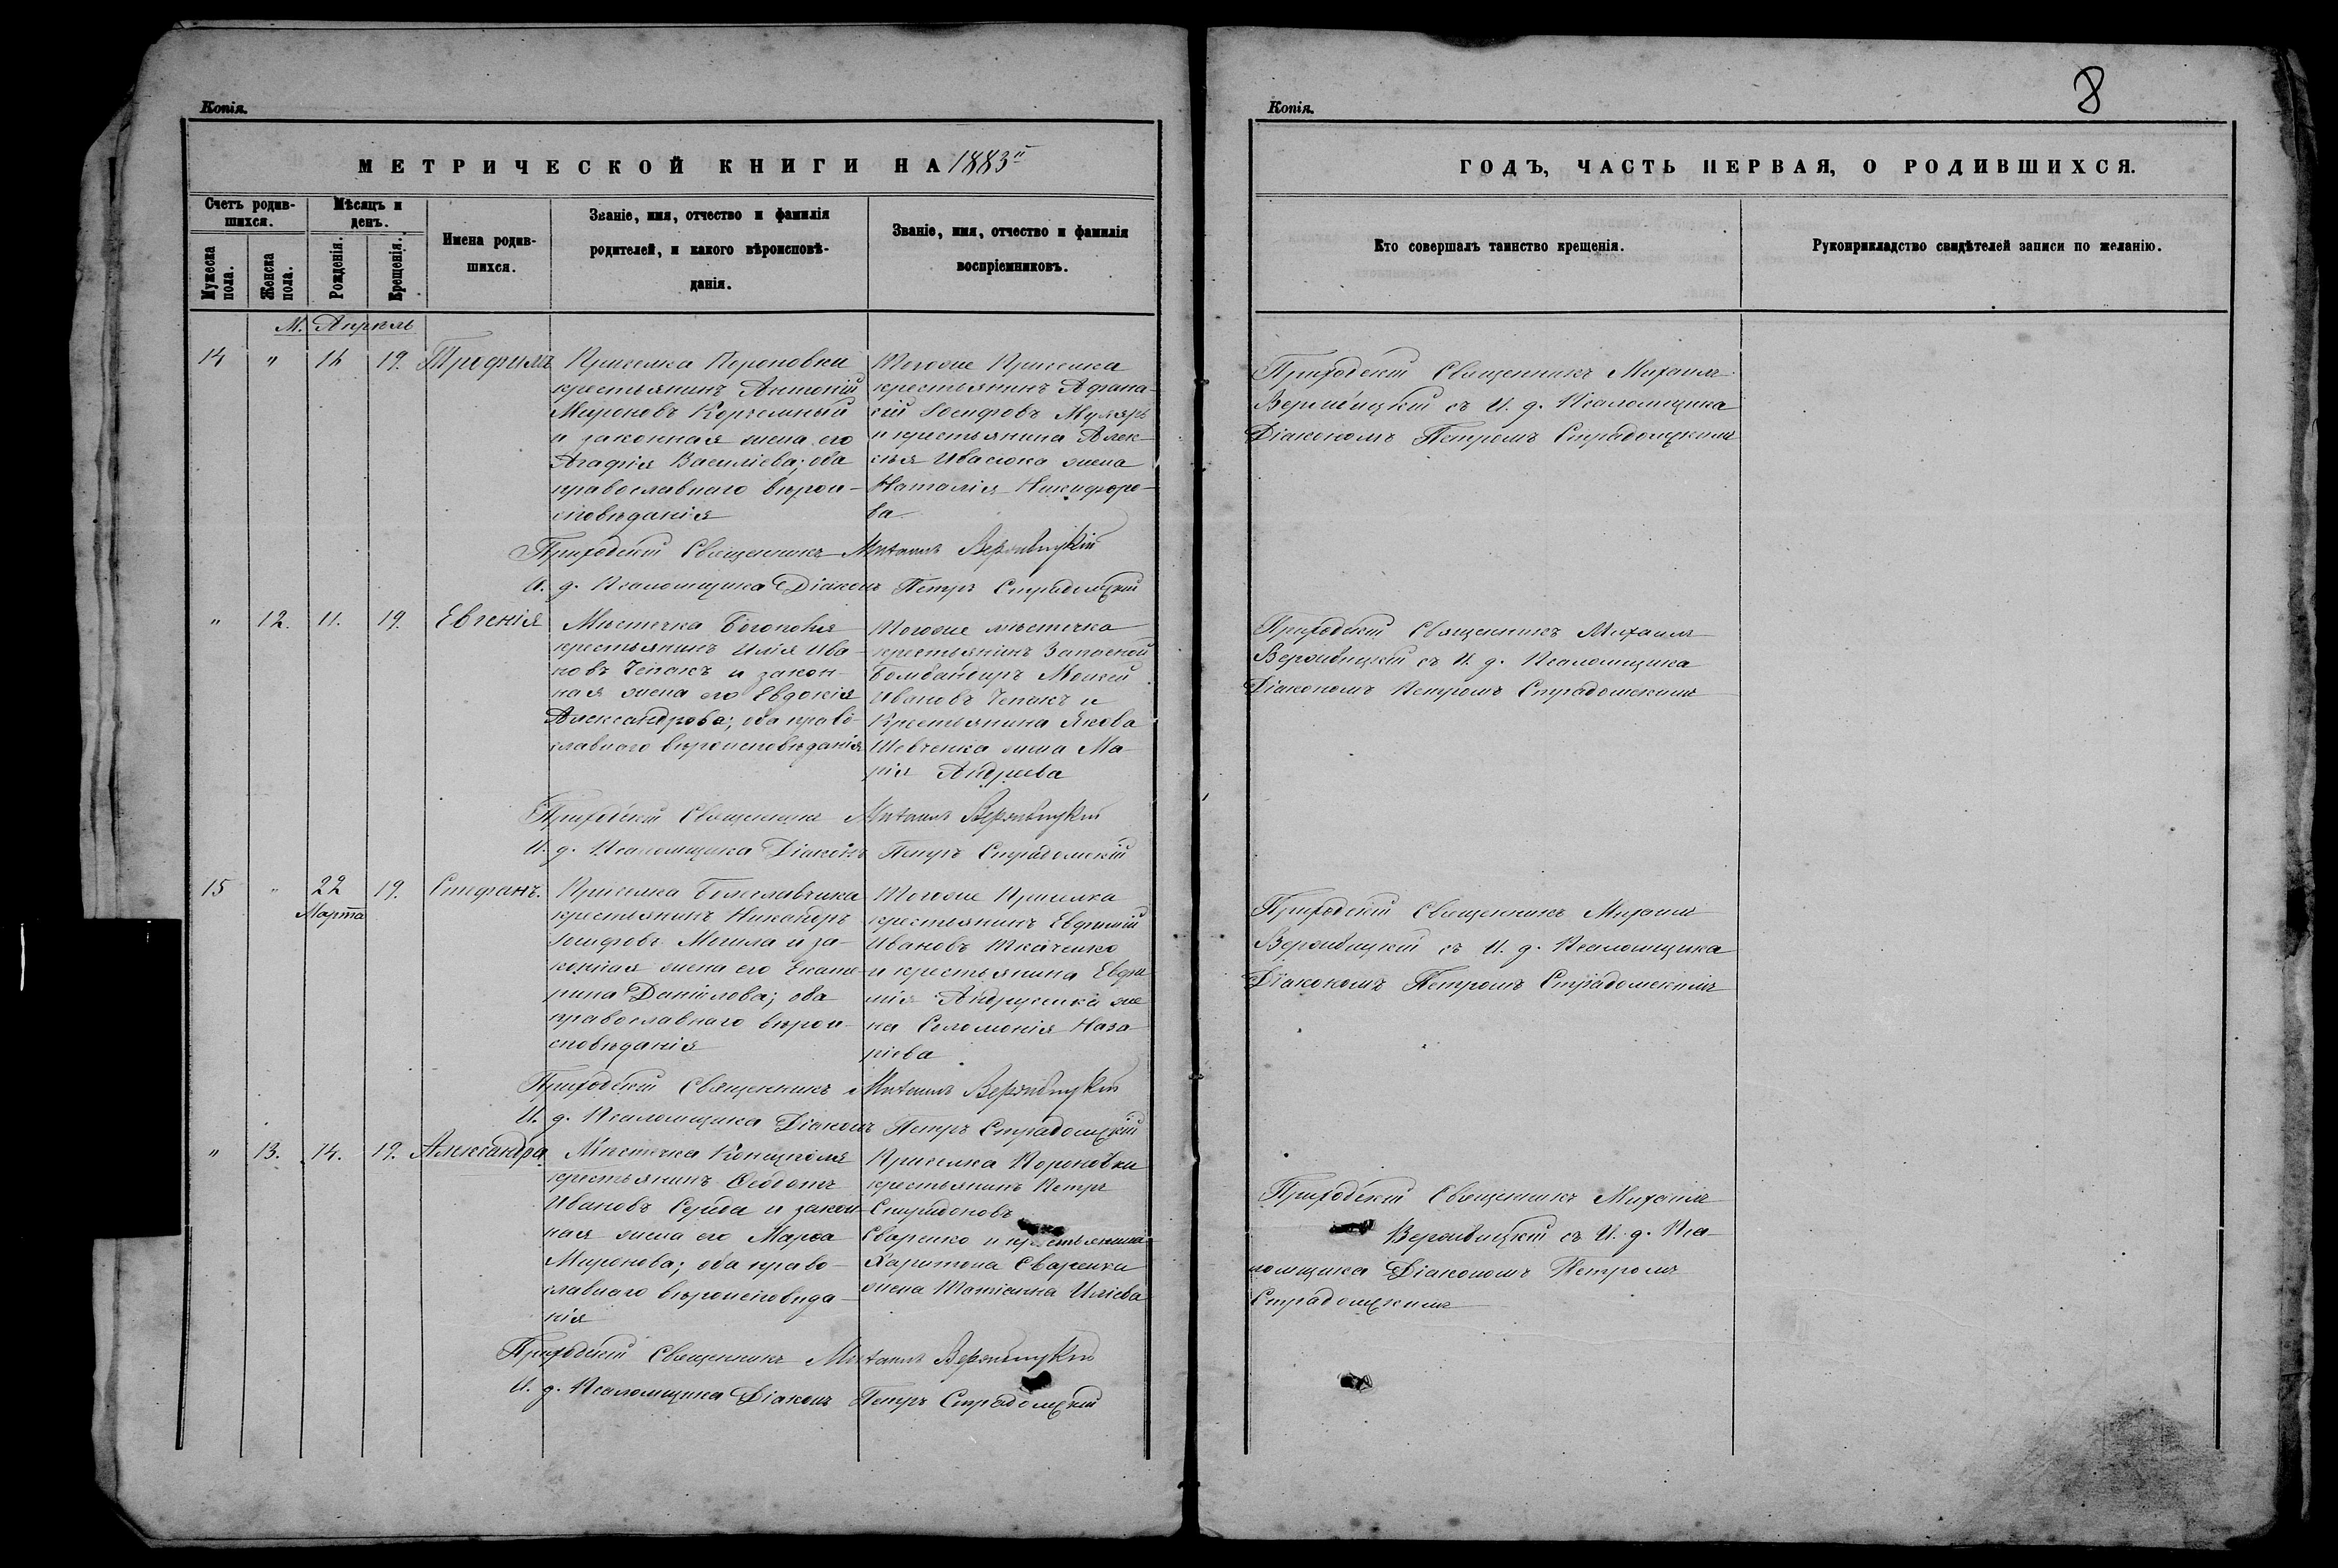 Копія.
МЕТРИЧЕСКОЙ КНИГИ НА 1883й
Счетъ родив-
шихся.
Мѣсяцъ и
день.
Мужеска
пола.
Женска
пола.
Рожденія.
Крещенія.
Имена родив-
шихся.
Званіе, имя, отчество и фамилія
родителей, и какого вѣроисповѣ-
данія.
Званіе, имя, отчество и фамилія
воспріемниковъ.
М. Апрѣль
14 " 19. Трофимъ
Приселка
крестьянинъ Антоній
Мироновъ
и законная жена его
Агафія Василіева; оба
православнаго вѣрои-
сповѣданія
Тогоже Приселка
крестьянинъ Афана-
сій Іосифовъ Муляръ
и крестьянина Алек-
сѣя Ивасюка жена
Наталія Никифоро-
ва
Приходскій Священникъ Михаилъ Вержбицкій
И. д. Псаломщика Діаконъ Петръ Страдомскій
" 12. 11. 19. Евгенія
Мѣстечка Богополя
крестьянинъ Илія Ива-
новъ Чепакъ и закон-
ная жена его Евдокія
Александрова; оба право-
славнаго вѣроисповѣданія
Тогоже мѣстечка
крестьянинъ Запасной
Бомбандиръ Моисей
Ивановъ Чепакъ и
Крестьянина Якова
Шевченка жена Ма-
рія Андреева
Приходскій Священникъ Михаилъ Вержбицкій
И. д. Псаломщика Діаконъ Петръ Страдомскій
15 " 22 19. Стефанъ.
Марта
Приселка Болеславчика
крестьянинъ Никаноръ
Іосифовъ Могила и за-
конная жена его Екате-
рина Данилова; оба
православнаго вѣрои-
сповѣданія
Тогоже Приселка
крестьянинъ Евфимій
Ивановъ Ткаченко
и крестьянина Евфи
мія жe
на Соломонія Наза
ріева
Приходскій Священникъ Михаилъ Вержбицкій
И. д. Псаломщика Діаконъ Петръ Страдомскій
" 13. 14. 19. Александра
Мѣстечка Конецполя
крестьянинъ Ѳеодотъ
Ивановъ Середа и закон-
ная жена его Марѳа
Миронова; оба право-
славнаго вѣроисповѣда-
нія
Приселка
крестьянинъ Петръ
Спиридоновъ
Сваренко и крестьянина
Харитона Сваренка
жена Татіанна Иліева
Приходскій Священникъ Михаилъ Вержбицкій
И. д. Псаломщика Діаконъ Петръ Страдомскій
Копія.
8
ГОДЪ, ЧАСТЬ ПЕРВАЯ, О РОДИВШИХСЯ.
Кто совершалъ таинство крещенія.
Рукоприкладство свидѣтелей записи по желанію.
Приходскій Священникъ Михаилъ
Вержбицкій съ И. д. Псаломщика
Діакономъ Петромъ Страдомскимъ
Приходскій Священникъ Михаилъ
Вержбицкій съ И. д. Псаломщика
Діакономъ Петромъ Страдомскимъ
Приходскій Священникъ Михаилъ
Вержбицкій съ И. д. Псаломщика
Діакономъ Петромъ Страдомскимъ
Приходскій Священникъ Михаилъ
Вержбицкій съ И. д. Пса-
ломщика Діакономъ Петромъ
Страдомскимъ